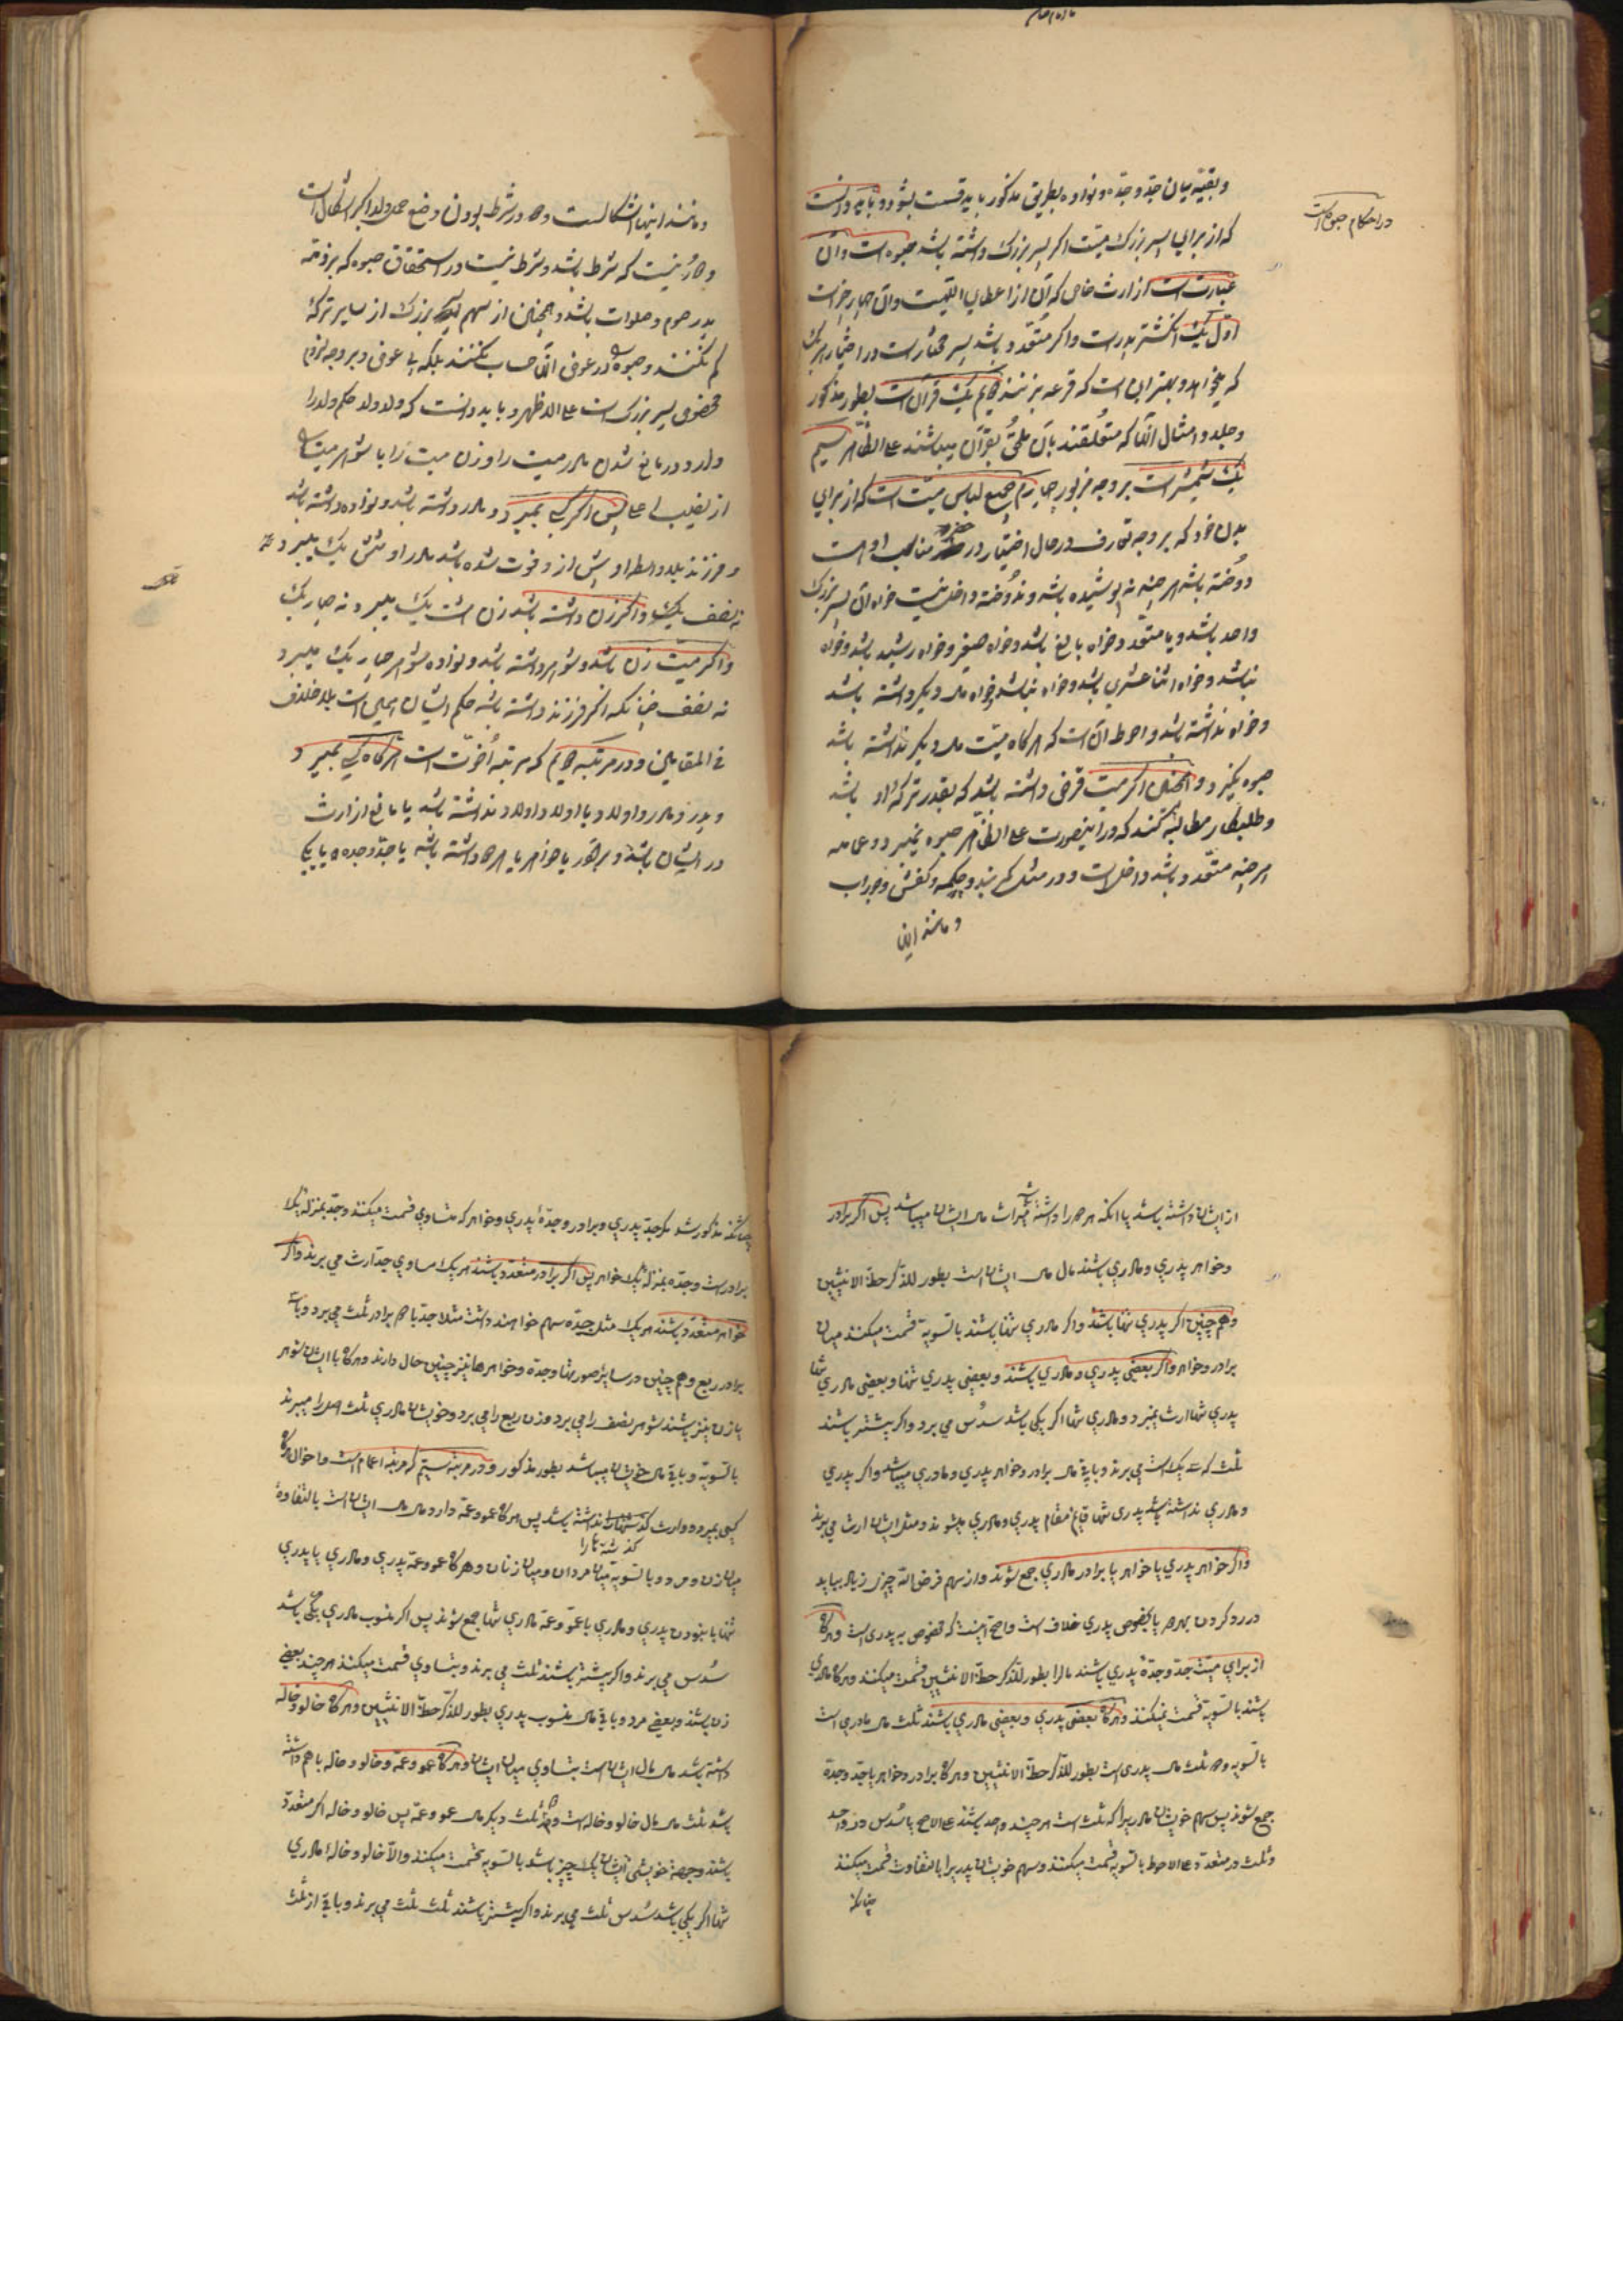 در احکام حبوه است
و بقیه میان جد و جده و نواده بطریق مذکور باید قسمت بشود و باید دانست
که از برای پسر بزرک میت اکر پسر بزرک داشته باشد حبوه است و آن
عبارتست از ارث خاص که آن از اعطای الهیست و آن چهار چیز است
اول یک انکشتر پدر است و اکر متعدد باشد پسر مختار است در اختیار هر یک
که بخواهد و بهتر این است که قرعه بزنند دویم یک قرآن است بطور مذکور
و جلد و امثال آنها که متعلقند بآن ملحق بقرآن میباشند علی الظاهر سیم
یک شمشیر است بر وجه مزبور چهارم جمیع لباس میت است که از برای
بدن خود که بر وجه تعارف در حال اختیار در مناسب او است
دوخته باشد هر چند نه پوشیده باشد و ندوخته داخل نیست خواه آن پسر بزرک
واحد باشد و یا متعدد و خواه بالغ باشد و خواه صغیر و خواه رشید باشد و خواه
نباشد و خواه اثنا عشری باشد و خواه نباشد و خواه مال دیکر داشته باشد
و خواه نداشته باشد و احوط آن است که هر کاه میت مال دیکر نداشته باشد
حبوه نکیرد و همچنین اکر میت قرض داشته باشد که بقدر ترکه او باشد
و طلبکار مطالبه کند که در اینصورت علی الظاهر حبوه نمیبرد و عمامه
هر چند متعدد باشد داخل است و در مثل کمربند و چکمه و کفش و جوراب
و مانند اینها
و مانند اینها اشکالست و در شرط بودن وضع حمل ولد اکبر اشکال است
و دور نیست که شرط باشد و شرط نیست در استحقاق حبوه که بر ذمه
پدر صوم و صلوات باشد و همچنین از سهم پسر بزرک از سایر ترکه
کم نکنند و حبوه را در عوض آن حساب نکنند بلکه بی عوض و بر وجه لزوم
مخصوص پسر بزرک است علی الاظهر و باید دانست که ولد ولد حکم ولد را
دارد در مانع شدن مادر میت را و زن میت را با شوهر میت را
از نصیب اعلی پس اکر کسی بمیرد و مادر داشته باشد و نواده داشته باشد
و فرزند بلاواسطه او پیش از او فوت شده باشد مادر او شش یک میبرد نه
نه نصف یک و اکر زن داشته باشد زن هشت یک میبرد نه چهار یک
و اکر میت زن باشد و شوهر داشته باشد و نواده شوهر چهار یک میبرد
نه نصف چنانکه اکر فرزند داشته باشد حکم ایشان همین است بلاخلاف
فی المقامین و در مرتبه دویم که مرتبه اخوت است هر کاه کسی بمیرد
و پدر و مادر و اولاد و یا اولاد اولاد نداشته باشد یا مانع از ارث
در ایشان باشد و برادر یا خواهر یا هر دو داشته باشد یا جد و جده و یا یکی
از ایشان داشته باشد یا آنکه هر دو را داشته باشد میراث مال ایشان میباشد پس اکر برادر
و خواهر پدری و مادری باشند مال مال ایشان است بطور للذکر حظ الانثیین
و هم چنین اکر پدری تنها باشند و اکر مادری تنها باشند بالتسویه قسمت میکنند میان
برادر و خواهر و اکر بعضی پدری و مادری باشند و بعضی پدری تنها و بعضی مادری تنها
پدری تنها ارث نمیبرد و مادری تنها اکر یکی باشد سدس می برد و اکر بیشتر باشند
ثلث که سه یک است می برند و باقی مال برادر و خواهر پدری و مادری میباشد و اکر پدری
و مادری نداشته باشد پدری تنها قایم مقام پدری و مادری میشوند و مثل ایشان ارث می برند
و اکر خواهر پدری با خواهر یا برادر مادری جمع شوند و از سهم فرض الله چیزی زیاد بیاید
در رد کردن بهر دو یا بخصوص پدری خلاف است و اصح اینست که مخصوص به پدری است و هر کاه
از برای میت جد و جده پدری باشند مال را بطور للذکر حظ الانثیین قسمت میکنند و هر کاه مادری
باشند بالتسویه قسمت میکنند و هر کاه بعضی پدری و بعضی مادری باشند ثلث مال مادری است
بالتسویه و دو ثلث مال پدری است بطور للذکر حظ الانثیین و هر کاه برادر و خواهر با جد و جده
جمع شوند پس سهم خویشان مادریرا که ثلث است هر چند واحد باشند علی الاصح یا سدس در واحد
و ثلث در متعدد علی الاحوط بالتسویه قسمت میکنند و سهم خویشان پدریرا بالتفاوت قسمت میکنند
چنانکه
چنانکه مذکور شد مکر جد پدری و برادر و جده پدری و خواهر که متساوی قسمت میکنند و جد بمنزله یک
برادر است و جده بمنزله یک خواهر پس اکر برادر متعدد باشند هر یک مساوی جد ارث می برند و اکر
خواهر متعدد باشند هر یک مثل جده سهم خواهند داشت مثلا جد با دو برادر ثلث می برد و با سه
برادر ربع و هم چنین در سایر صور تنها و جده و خواهر ها نیز چنین حال دارند و هر کاه با ایشان شوهر
یا زن نیز باشند شوهر نصف را می برد و زن ربع را می برد و خویشان مادری ثلث اصل را میبرند
بالتسویه و باقی مال خویشان میباشد بطور مذکور و در مرتبه سیم که مرتبه اعمام است و اخوال هر کاه
کسی بمیرد و وارث کذشته ها را نداشته باشد پس هر کاه عمو و عمه دارد مال مال ایشان است بالتفاوة
میان زن و مرد و بالتسویه میان مردان و میان زنان و هر کاه عمو و عمه پدری و مادری یا پدری
تنها با نبودن پدری و مادری با عمو و عمه مادری تنها جمع شوند پس اکر منسوب مادری یکی باشد
سدس می برند و اکر بیشتر باشند ثلث می برند و بتساوی قسمت میکنند هر چند بعضی
زن باشند و بعضی مرد و باقی مال منسوب پدری بطور للذکر حظ الانثیین و هر کاه خالو و خاله
داشته باشد مال مال ایشان است بتساوی میان ایشان و هر کاه عمو و عمه و خالو و خاله با هم داشته
باشد ثلث مال مال خالو و خاله است و دو ثلث دیکر مال عمو و عمه پس خالو و خاله اکر متعدد
باشند و جهة خویشی ایشان یک چیز باشد بالتسویه قسمت میکنند و الا خالو و خاله مادری
تنها اکر یکی باشد سدس ثلث می برند و اکر بیشتر باشند ثلث ثلث می برند و باقی از ثلث